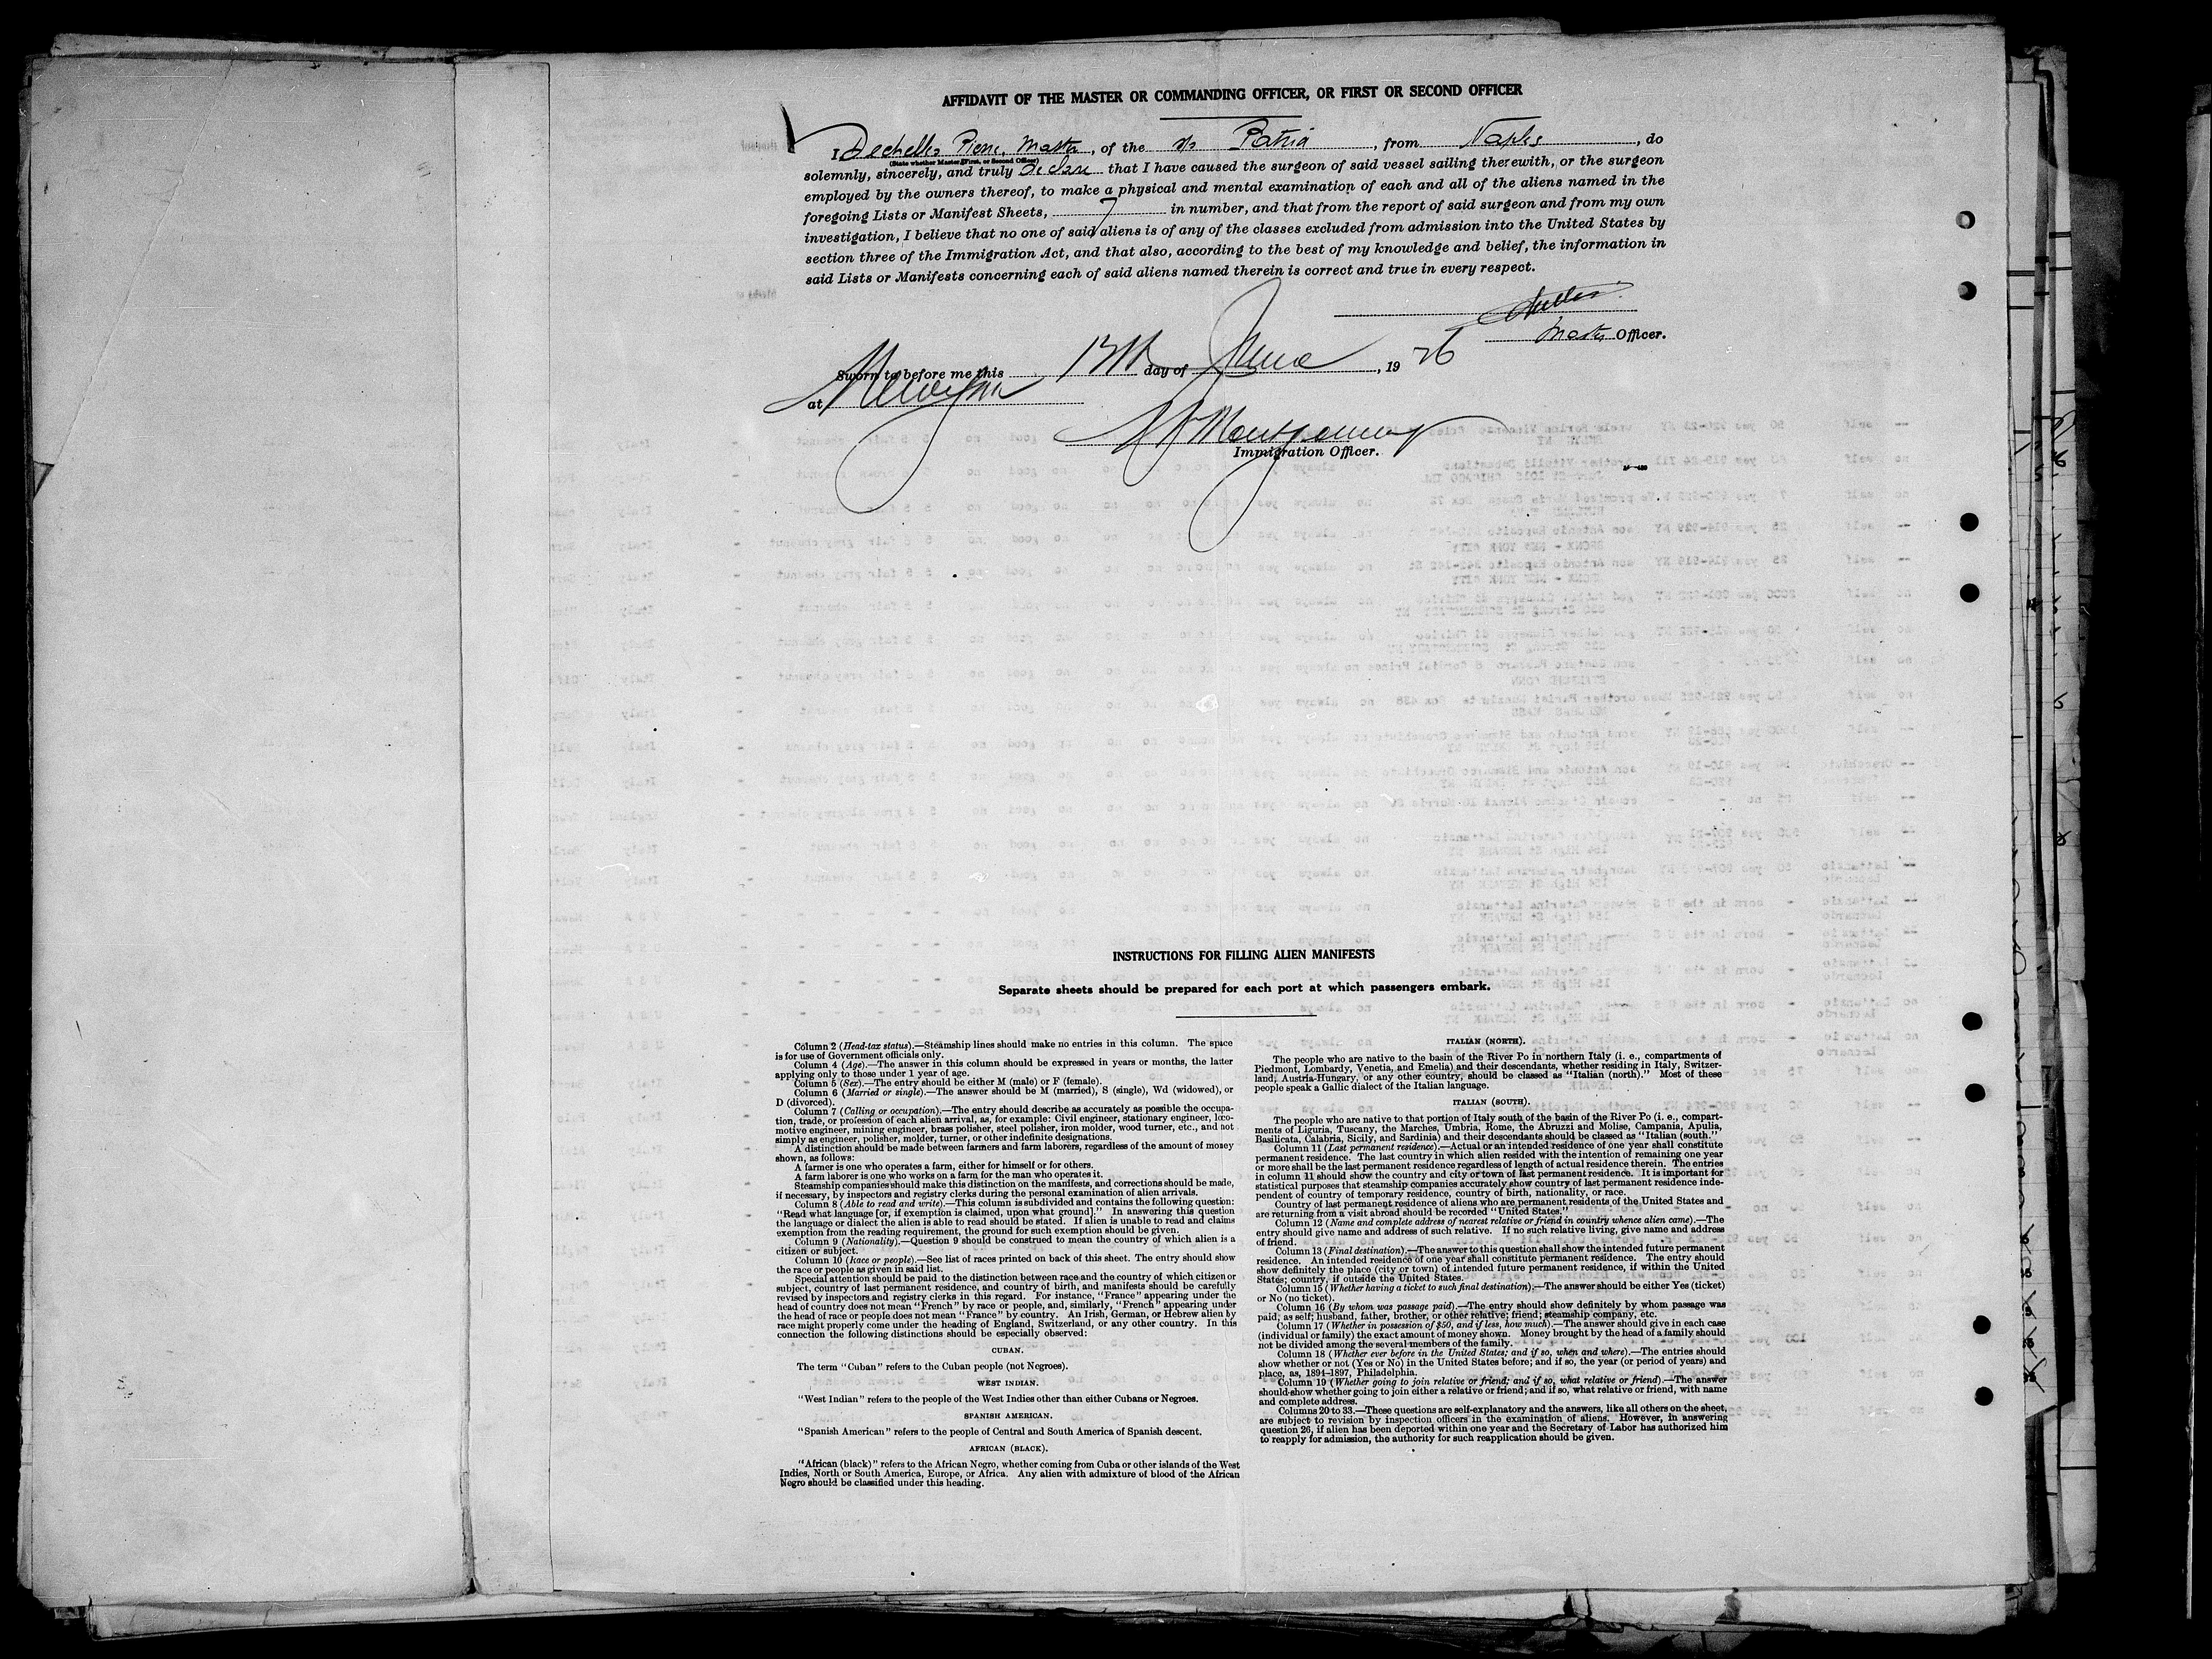 AFFIDAVIT OF THE MASTER OR COMMANDING OFFICER, OR FIRST OR SECOND OFFICER
I, Dechelles Pierre, Master, of the s/s Patria, from Naples, do
(State whether Master, First, or Second Officer)
solemnly, sincerely, and truly declare that I have caused the surgeon of said vessel sailing therewith, or the surgeon
employed by the owners thereof, to make a physical and mental examination of each and all of the aliens named in the
foregoing Lists or Manifest Sheets, 7 in number, and that from the report of said surgeon and from my own
investigation, I believe that no one of said aliens is of any of the classes excluded from admission into the United States by
section three of the Immigration Act, and that also, according to the best of my knowledge and belief, the information in
said Lists or Manifests concerning each of said aliens named therein is correct and true in every respect.
Master Officer.
Sworn to before me this 13th day of June, 1926
at New York
Montgomery
Immigration Officer.
INSTRUCTIONS FOR FILLING ALIEN MANIFESTS
Separate sheets should be prepared for each port at which passengers embark.
Column 2 (Head-tax status).—Steamship lines should make no entries in this column. The space
is for use of Government officials only.
Column 4 (Age).—The answer in this column should be expressed in years or months, the latter
applying only to those under 1 year of age.
Column 5 (Sex).—The entry should be either M (male) or F (female).
Column 6 (Married or single).—The answer should be M (married), S (single), Wd (widowed), or
D (divorced).
Column 7 (Calling or occupation).—The entry should describe as accurately as possible the occupa-
tion, trade, or profession of each alien arrival, as, for example: Civil engineer, stationary engineer, loco-
motive engineer, mining engineer, brass polisher, steel polisher, iron molder, wood turner, etc., and not
simply as engineer, polisher, molder, turner, or other indefinite designations.
A distinction should be made between farmers and farm laborers, regardless of the amount of money
shown, as follows:
A farmer is one who operates a farm, either for himself or for others.
A farm laborer is one who works on a farm for the man who operates it.
Steamship companies should make this distinction on the manifests, and corrections should be made,
if necessary, by inspectors and registry clerks during the personal examination of alien arrivals.
Column 8 (Able to read and write).—This column is subdivided and contains the following question:
"Read what language [or, if exemption is claimed, upon what ground]." In answering this question
the language or dialect the alien is able to read should be stated. If alien is unable to read and claims
exemption from the reading requirement, the ground for such exemption should be given.
Column 9 (Nationality).—Question 9 should be construed to mean the country of which alien is a
citizen or subject.
Column 10 (Race or people).—See list of races printed on back of this sheet. The entry should show
the race or people as given in said list.
Special attention should be paid to the distinction between race and the country of which citizen or
subject, country of last permanent residence, and country of birth, and manifests should be carefully
revised by inspectors and registry clerks in this regard. For instance, "France" appearing under the
head of country does not mean "French" by race or people, and, similarly, "French" appearing under
the head of race or people does not mean "France" by country. An Irish, German, or Hebrew alien by
race might properly come under the heading of England, Switzerland, or any other country. In this
connection the following distinctions should be especially observed:
CUBAN.
The term "Cuban" refers to the Cuban people (not Negroes).
WEST INDIAN.
"West Indian" refers to the people of the West Indies other than either Cubans or Negroes.
SPANISH AMERICAN.
"Spanish American" refers to the people of Central and South America of Spanish descent.
AFRICAN (BLACK).
"African (black)" refers to the African Negro, whether coming from Cuba or other islands of the West
Indies, North or South America, Europe, or Africa. Any alien with admixture of blood of the African
Negro should be classified under this heading.
ITALIAN (NORTH).
The people who are native to the basin of the River Po in northern Italy (i. e., compartments of
Piedmont, Lombardy, Venetia, and Emelia) and their descendants, whether residing in Italy, Switzer-
land, Austria-Hungary, or any other country, should be classed as "Italian (north)." Most of these
people speak a Gallic dialect of the Italian language.
ITALIAN (SOUTH).
The people who are native to that portion of Italy south of the basin of the River Po (i. e., compart-
ments of Liguria, Tuscany, the Marches, Umbria, Rome, the Abruzzi and Molise, Campania, Apulia,
Basilicata, Calabria, Sicily, and Sardinia) and their descendants should be classed as "Italian (south."
Column 11 (Last permanent residence).—Actual or an intended residence of one year shall constitute
permanent residence. The last country in which alien resided with the intention of remaining one year
or more shall be the last permanent residence regardless of length of actual residence therein. The entries
in column 11 should show the country and city or town of last permanent residence. It is important for
statistical purposes that steamship companies accurately show country of last permanent residence inde-
pendent of country of temporary residence, country of birth, nationality, or race.
Country of last permanent residence of aliens who are permanent residents of the United States and
are returning from a visit abroad should be recorded "United States."
Column 12 (Name and complete address of nearest relative or friend in country whence alien came).—The
entry should give name and address of such relative. If no such relative living, give name and address
of friend.
Column 13 (Final destination).—The answer to this question shall show the intended future permanent
residence. An intended residence of one year shall constitute permanent residence. The entry should
show definitely the place (city or town) of intended future permanent residence, if within the United
States; country, if outside the United States.
Column 15 (Whether having a ticket to such final destination).—The answer should be either Yes (ticket)
or No (no ticket).
Column 16 (By whom was passage paid).—The entry should show definitely by whom passage was
paid; as self; husband, father, brother, or other relative; friend; steamship company, etc.
Column 17 (Whether in possession of $50, and if less, how much).—The answer should give in each case
(individual or family) the exact amount of money shown. Money brought by the head of a family should
not be divided among the several members of the family.
Column 18 (Whether ever before in the United States; and if so, when and where).—The entries should
show whether or not (Yes or No) in the United States before; and if so, the year (or period of years) and
place, as, 1894-1897, Philadelphia.
Column 19 (Whether going to join relative or friend; and if so, what relative or friend).—The answer
should show whether going to join either a relative or friend; and if so, what relative or friend, with name
and complete address.
Columns 20 to 33.—These questions are self-explanatory and the answers, like all others on the sheet,
are subject to revision by inspection officers in the examination of aliens. However, in answering
question 26, if alien has been deported within one year and the Secretary of Labor has authorized him
to reapply for admission, the authority for such reapplication should be given.